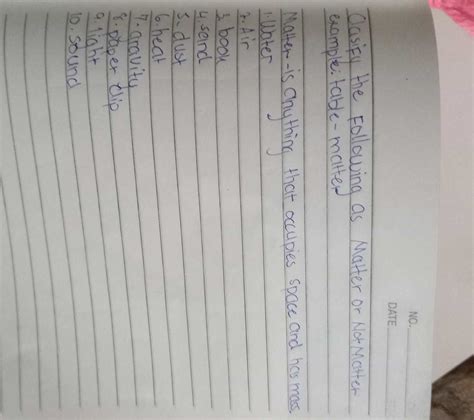 NO.
DATE
Clasify the Following as Matter or Not Matter
example: table - matter
Matter - is anything that occupies space and has mass
1. Water
2. Air
3. book
4. sand
5. dust
6. heat
7. gravity
8. paper clip
9. light
10. sound